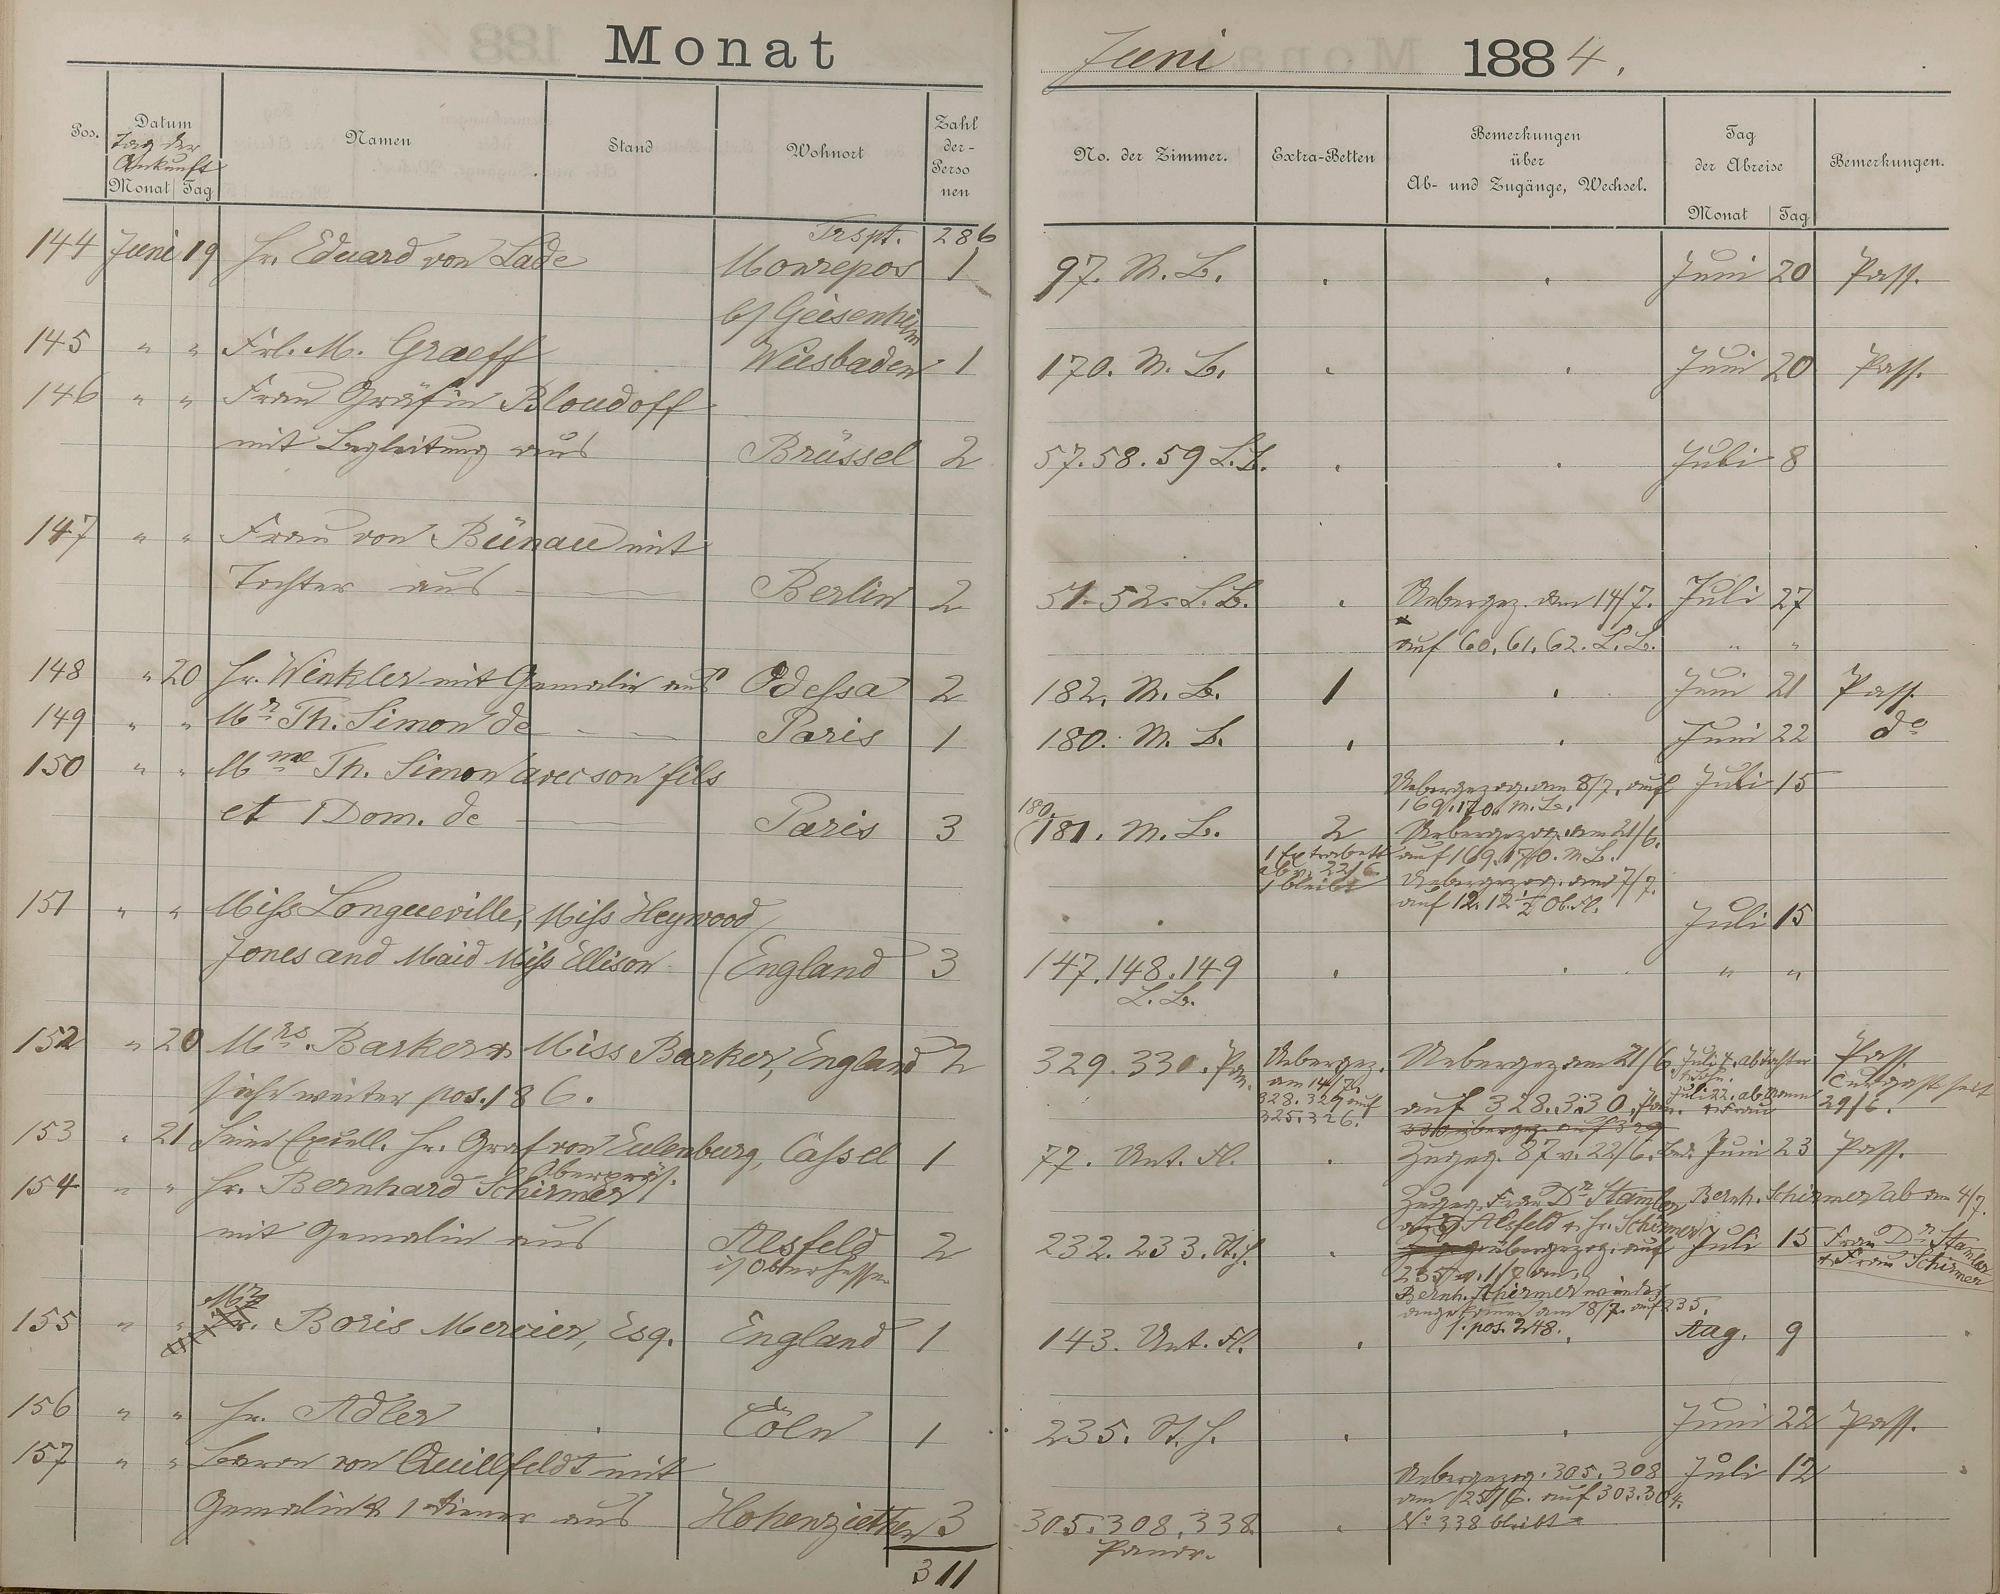 Monat
Juni 1884.
Pos.
Datum
Tag der
Ankunft
Monat Tag
Namen
Stand
Wohnort
Zahl
der-
Perso
nen
No. der Zimmer.
Extra-Betten
Bemerkungen
über
Ab- und Zugänge, Wechsel.
Tag
der Abreise
Monat Tag
Bemerkungen.
Trspt. 286
144 Juni 19 Hr. Eduard von Lade Monrepos 1 97. M. B. . . Juni 20 Pass.
b/ Geisenheim
145 " " Frl. M. Graeff Wiesbaden 1 170. M. B. . . Juni 20 Pass.
146 " " Frau Gräfin Bloudoff
mit Begleitung aus Brüssel 2 57. 58. 59 L.B. . . Juli 8
147 " " Frau von Bünau mit
Tochter aus Berlin 2 51. 52. L. B. . Uebergez. am 14/7. Juli 27
auf 60, 61, 62. L. B. " "
148 " 20 Hr. Winkler mit Gemalin aus Odessa 2 182. M. B. 1 . Juni 21 Pass.
149 " " Mr Th. Simon de Paris 1 180. M. B. . . Juni 22 do
150 " " Mme Th. Simon avec son fils
Uebergezog. am 8/7. auf Juli 15
169. 170. M. B.
et 1 Dom. de Paris 3 180. (181. M. B. 2 Uebergezog. am 21/6.
1 Extrabett auf 169. 170. M. B.
ab v. 22/6. Uebergezog. am 7/7.
1 bleibt auf 12. 12½ Ob. Fl.
151 " " Miss Longueville, Miss Heywood Juli 15
Jones and Maid Miss Ellison (England 3 147. 148. 149 . . " "
L. B.
152 " 20 Mrs. Barker & Miss Barker, England 2 329. 330. Pan. Uebergez. Uebergez am 21/6 Pass
am 14/7. Curgast seit
328. 329 auf auf 328. 330. Pan. 29/6.
325. 326.
siehe weiter pos. 186.
153 " 21 Seine Excell. Hr. Graf von Eulenburg, Cassel 1 77. Unt. Fl. . Zugeg. 87 v. 22/6. Juni 23 Pass.
Oberpräs.
154 " " Hr. Bernhard Schirmer Zugeg. Frau Dr Stamler Bernh. Schirmer ab am 4/7.
aus Alsfeld & Hr. Schirmer
mit Gemalin aus Alsfeld 2 232. 233. St. H. . übergezog. auf Juli 15 Frau Dr Stamler
i/ Oberhessen 235 v. 1/7 an, & Frau Schirmer
Bernh. Schirmer wieder
angekommen am 8/7. auf 235.
s. pos. 248.
155 " " Mr Boris Mercier, Esq. England 1 143. Unt. Fl. . . Aug. 9
156 " " Hr. Adler Cöln 1 235. St. H. . . Juni 22 Pass.
157 " " Baron von Quillfeldt mit Uebergezog. 305. 308 Juli 12
am 25/6. auf 303. 304.
Gemalin & 1 Diener aus Hohenziethen 3 305. 308. 338. . No 338 bleibt
Panor.
311